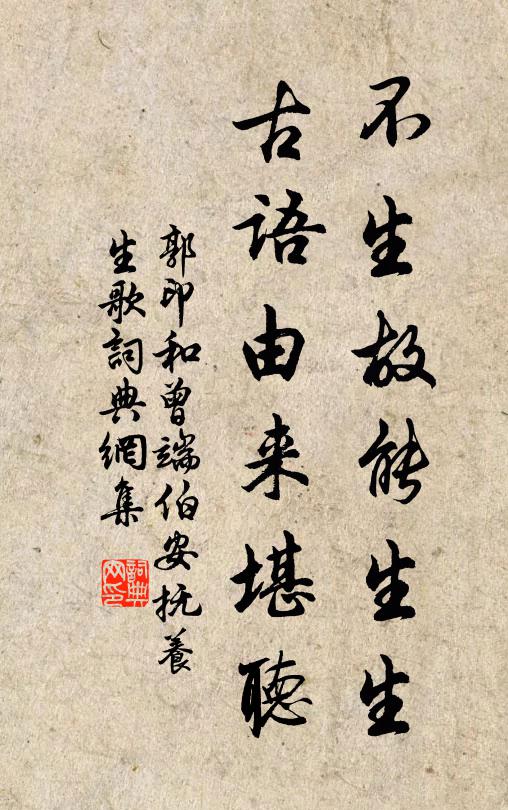 不生故能生生
古語由来堪聽
郭印和曾端伯安抚養
生歌詞典網集
詞典
网印